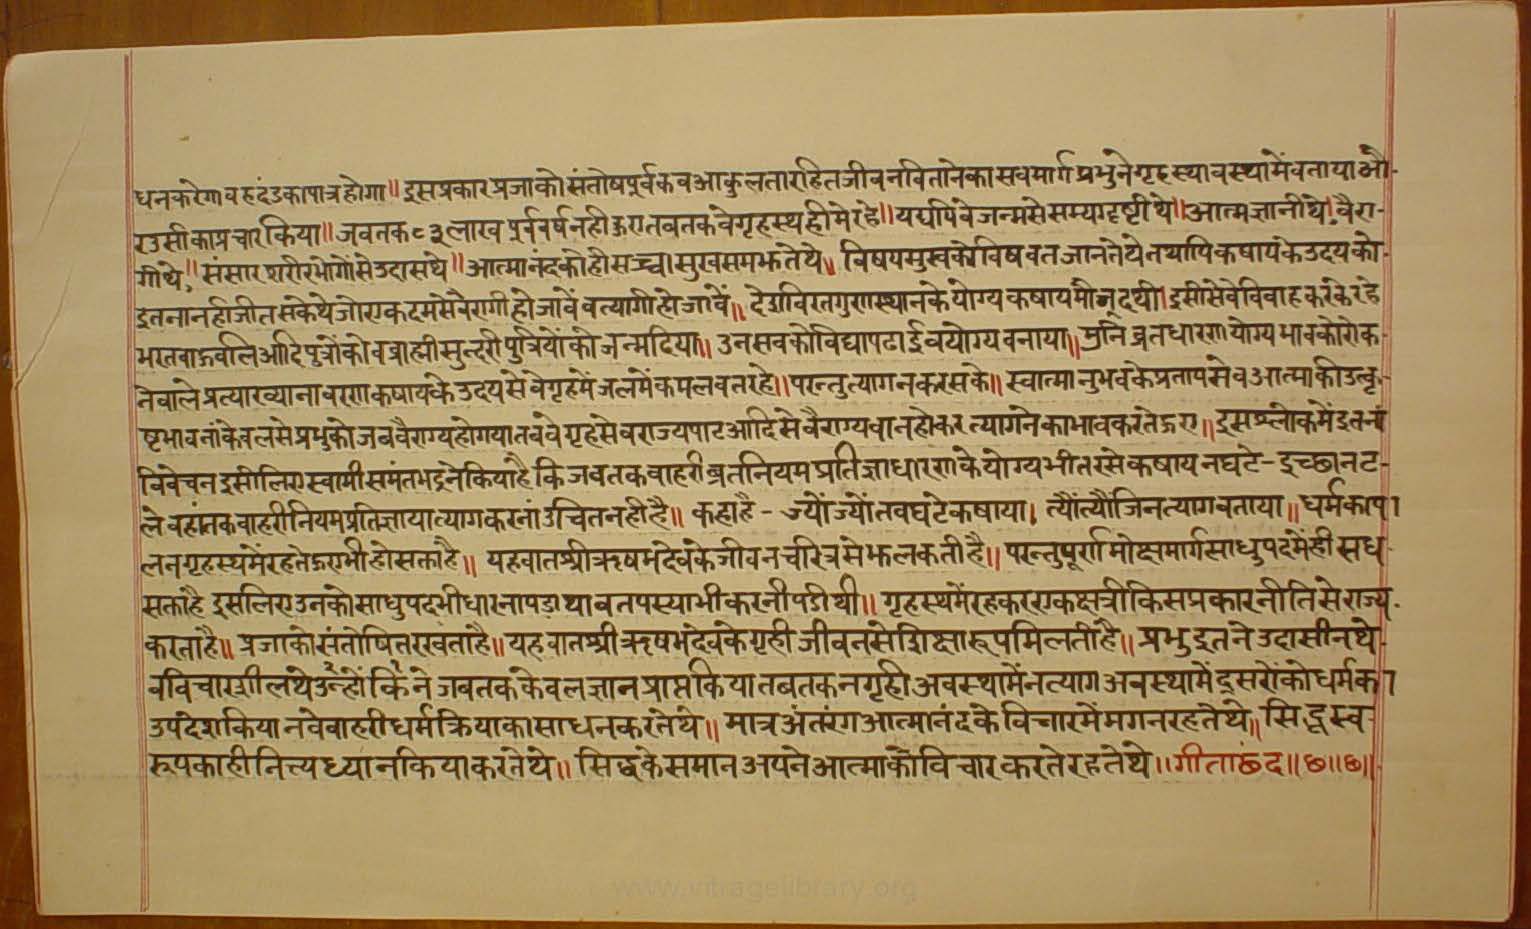 धनकरेगावहदंडकापात्रहोगा॥ इसप्रकारप्रजाकोसंतोषपूर्वकवआकुलतारहितजीवनवितानेकासवमार्गप्रभुनेगृहस्यावस्थामेंवतायाऔ-
रउसीकाप्रचारकिया॥ जवतक८३लाखपूर्ववर्षनहीऊएतवतकवेगृहस्थहीमेरहे॥ यद्यपिवेजन्मसेसम्यग्दृष्टीथे॥आत्मज्ञानीथे।वैरा-
गीथे॥ संसारशरीरभोगोंसेउदासथे॥ आत्मानंदकोहीसच्चासुखसमझतेथे॥ विषयसुखकोविषवतजानतेथेतथापिकषायकेउदयको-
इतनानहीजीतसकेथेजोएकदमसेवैरागीहोजावेंवत्यागीहोजावें॥ देशविरतगुणस्थानकेयोग्यकषायमौजूदथी।इसीसेवेविवाहकरकेरहे
भरतवाऊवलिआदिपुत्रोंकोवब्राह्मीसुन्दरीपुत्रियोंकोजन्मदिया॥ उनसवकोविद्यापढाईवयोग्यवनाया॥ मुनिव्रतधारणयोग्यभावकोरोक-
नेवालेप्रत्याख्यानावरणकषायकेउदयसेवेगृहमेंजलमेंकमलवतरहे॥परन्तुत्यागनकरसके॥ स्वात्मानुभवकेप्रतापसेवआत्माकीउत्कृ-
ष्टभावनाकेवलसेप्रभुकोजबवैराग्यहोगयातबवेगृहसेवराज्यपाटआदिसेवैराग्यवानहोकरत्यागनेकाभावकरतेऊए॥ इसश्लोकमेंइतना
विवेचनइसीलिएस्वामीसमंतभद्रनेकियाहैकिजवतकवाहरीव्रतनियमप्रतिज्ञाधारणकेयोग्यभीतरसेकषायनघटे-इच्छानट-
लेवहांतकवाहरीनियमप्रतिज्ञायात्यागकरनाउचितनहीहै॥ कहाहै-ज्योंज्योंतवघटेकषाया। त्यौंत्यौंजिनत्यागवताया॥धर्मकापा
लनगृहस्थमेंरहतेऊएभीहोसक्ताहै॥ यहवातश्रीऋषभदेवकेजीवनचरित्रसेझलकतीहै॥ परन्तुपूर्णमोक्षमार्गसाधुपदमेंहीसध-
सक्ताहै इसलिएउनकोसाधुपदभीधारनापडाथावतपस्याभीकरनीपडीथी॥ गृहस्थमेंरहकरएकक्षत्रीकिसप्रकारनीतिसेराज्य-
करताहै॥ प्रजाकोसंतोषितरखताहै॥यहवातश्रीऋषभदेवकेगृहीजीवनसेशिक्षारूपमिलतीहै॥ प्रभुइतनेउदासीनथे-
वविचारशीलथेउन्होंकिनेजवतककेवलज्ञानप्राप्तकियातबतकनगृहीअवस्थामेंनत्यागअवस्थामेंदूसरोंकोधर्मका
उपदेशकियानवेवाहरीधर्मक्रियाकासाधनकरतेथे॥ मात्रअंतरंगआत्मानंदकेविचारमेंमगनरहतेथे॥सिद्धस्व-
रूपकाहीनित्यध्यानकियाकरतेथे॥ सिद्धकेसमानअपनेआत्माकोविचारकरतेरहतेथे॥गीताछंद॥छ॥छ॥
www.vitragelibrary.org